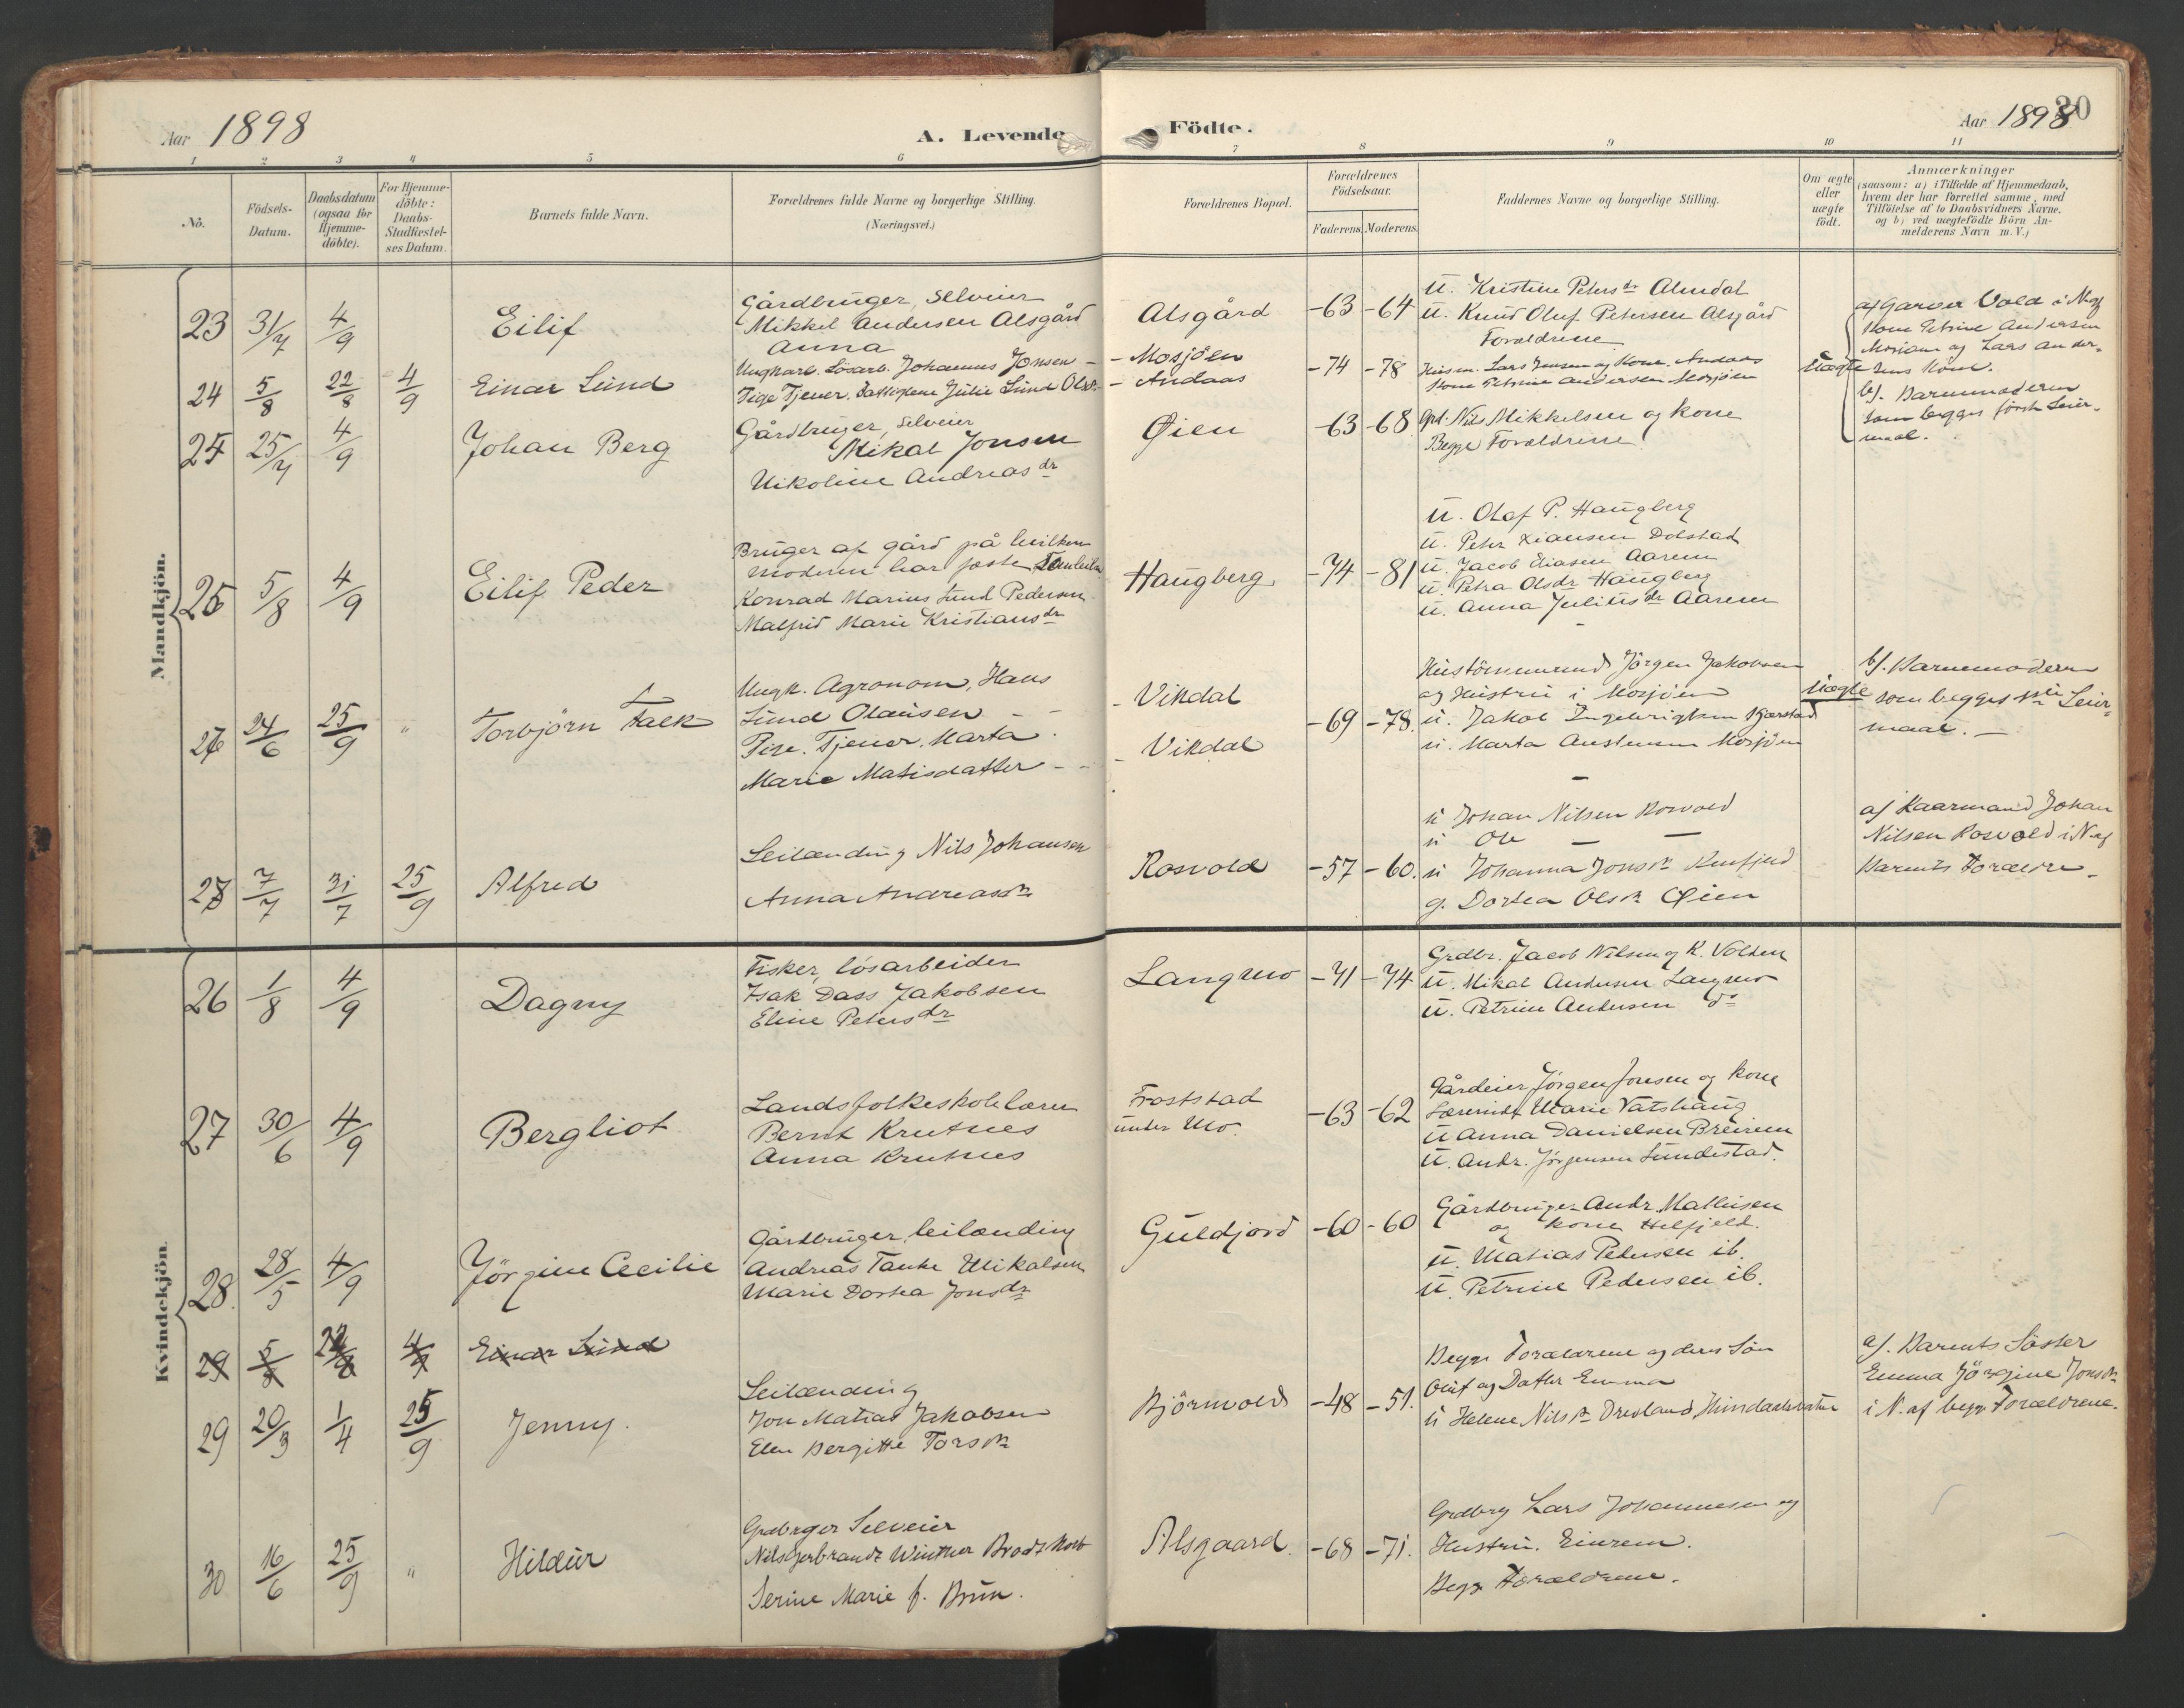 Aar 1898
A. Levende Födte.
Aar 1898
30
1 2 3 4 5 6 7 8 9 10 11
No.
Födsels-Datum.
Daabsdatum (ogsaa for Hjemme-döbte).
For Hjemme-döbte: Daabs-Stadfæstel-ses Datum.
Barnets fulde Navn.
Forældrenes fulde Navne og borgerlige Stilling.
(Næringsvei.)
Forældrenes Bopæl.
Forældrenes Födselsaar.
Faderens. Moderens.
Faddernes Navne og borgerlige Stilling.
Om ægte eller uægte födt.
Anmærkninger
(saasom: a) i Tilfælde af Hjemmedaab,
hvem der har forrettet samme, med
Tilföielse af to Daabsvidners Navne,
og b) ved uægtefödte Börn An-
melderens Navn m. V.)
Mandkjön.
23 31/7 4/9 Eilif
Gårdbruger, Selveier
Mikkel Andersen Alsgård
Anna
Alsgård -63 -64
U. Kristine Petersdr Almdal
U. Knud Oluf Petersen Alsgård
Forældrene
24 5/8 22/8 4/9 Einar Lund
Ungkarl. Lösarb. Johannes Jonsen -
Pige Tjener. Julie Lund Olsdr.
- Mosjöen
- Andaas
-74 -78
Husm. Lars Jensen og Kone Andaas
Kone Petrine Andersen Mosjöen
Uægte
a) Garver Vold i N. af
Kone Petrine Andersen
Mosjöen og Lars Ander-
sens Kone.
b). Barnemoderen
som begges förste Leier-
maal.
25 25/7 4/9 Johan Berg
Gårdbruger, Selveier
Mikal Jonsen
Nikoline Andreasdr
Øien -63 -68
Gbr. Nils Mikkelsen og Kone
Begge Forældrene
26 5/8 4/9 Eilif Peder
Bruger af gård på hvilken
moderen har fæste
Konrad Marius Lund Pedersen
Malfrid Marie Kristiansdr
Haugberg -74 -81
U. Olaf P. Haugberg
U. Peter Dolstad
U. Jacob Eliasen Aarem
U. Petra Olsdr Haugberg
U. Anna Juliusdr Aarem
27 24/6 25/9 " Torbjörn Falk
Ungk. Agronom, Hans
Lund Olausen - -
Pige. Tjener. Marta -
Marie Matisdatter - -
- Vikdal
- Vikdal
-69 -78.
Hustömmermand Jörgen Jakobsen
og Hustru i Mosjöen
U. Jakob Ingebrigtsen Kjærstad
U. Marta Mosjöen
Uægte
b). Barnemoderen
som begges Leier-
maal. -
28 7/7 31/7 25/9 Alfred
Leilænding Nils Johansen
Anna Andreasdr
Rosvold -57 -60.
U Johan Nilsen Rosvold
U Ole -  -
U Johanna Jonsdr
g. Dortea Olsdr Øien
a) Kaarmand Johan
Nilsen Rosvold i N. af
Barnets Forældre -
Kvindekjön.
26 1/8 4/9 Dagny
Fisker, lösarbeider
Isak Dass Jakobsen
Eline Petersdr
Langmo -71 -74
Grdbr. Jacob Nilsen og K. Volden
U. Mikal Andersen Langmo
U. Petrine Andersen do
27 30/6 4/9 Bergliot
Landsfolkeskolelærer
Bernt Krutnes
Anna Krutnes
Froststad
under Mo.
-63 -62
Gårdeier Jörgen Jonsen og kone
Lærerinde Marie Vatshaug
U Anna Danielsen Breirem
U. Andr. Jörgensen Lundestad.
28. 28/5 4/9 Jörgine Cecilie
Gårdbruger, leilænding
Andreas Tanke Mikalsen
Marie Dortea Jonsdr
Guldjord -60 -60
Gårdbruger Andr. Mathisen
og kone Helfjeld.
U. Matias Pedersen ib.
U. Petrine Pedersen ib.
29 5/8 22/8 4/9 Einar Lund
29 20/3 1/4 25/9 Jenny.
Leilænding
Jon Matias Jakobsen
Elen Bergitte Torsdr
Björnvold -48 -51.
Begge Forældrene og deres Sön
Oluf og Datter Emma
U Helene Nilsdr Drevland
a). Barnets Söster
Emma Jörgine Jonsdr
i N. af begge Forældrene.
30 16/6 25/9 " Hildur
Grdbruger Selveier
Nils Gjerbrandt Winther Brodtkorb
Serine Marie f. Brun.
Alsgaard. -68 -71.
Grdbrg Lars Johannesen og
Hustru. Einrem.
Begge Forældrene.